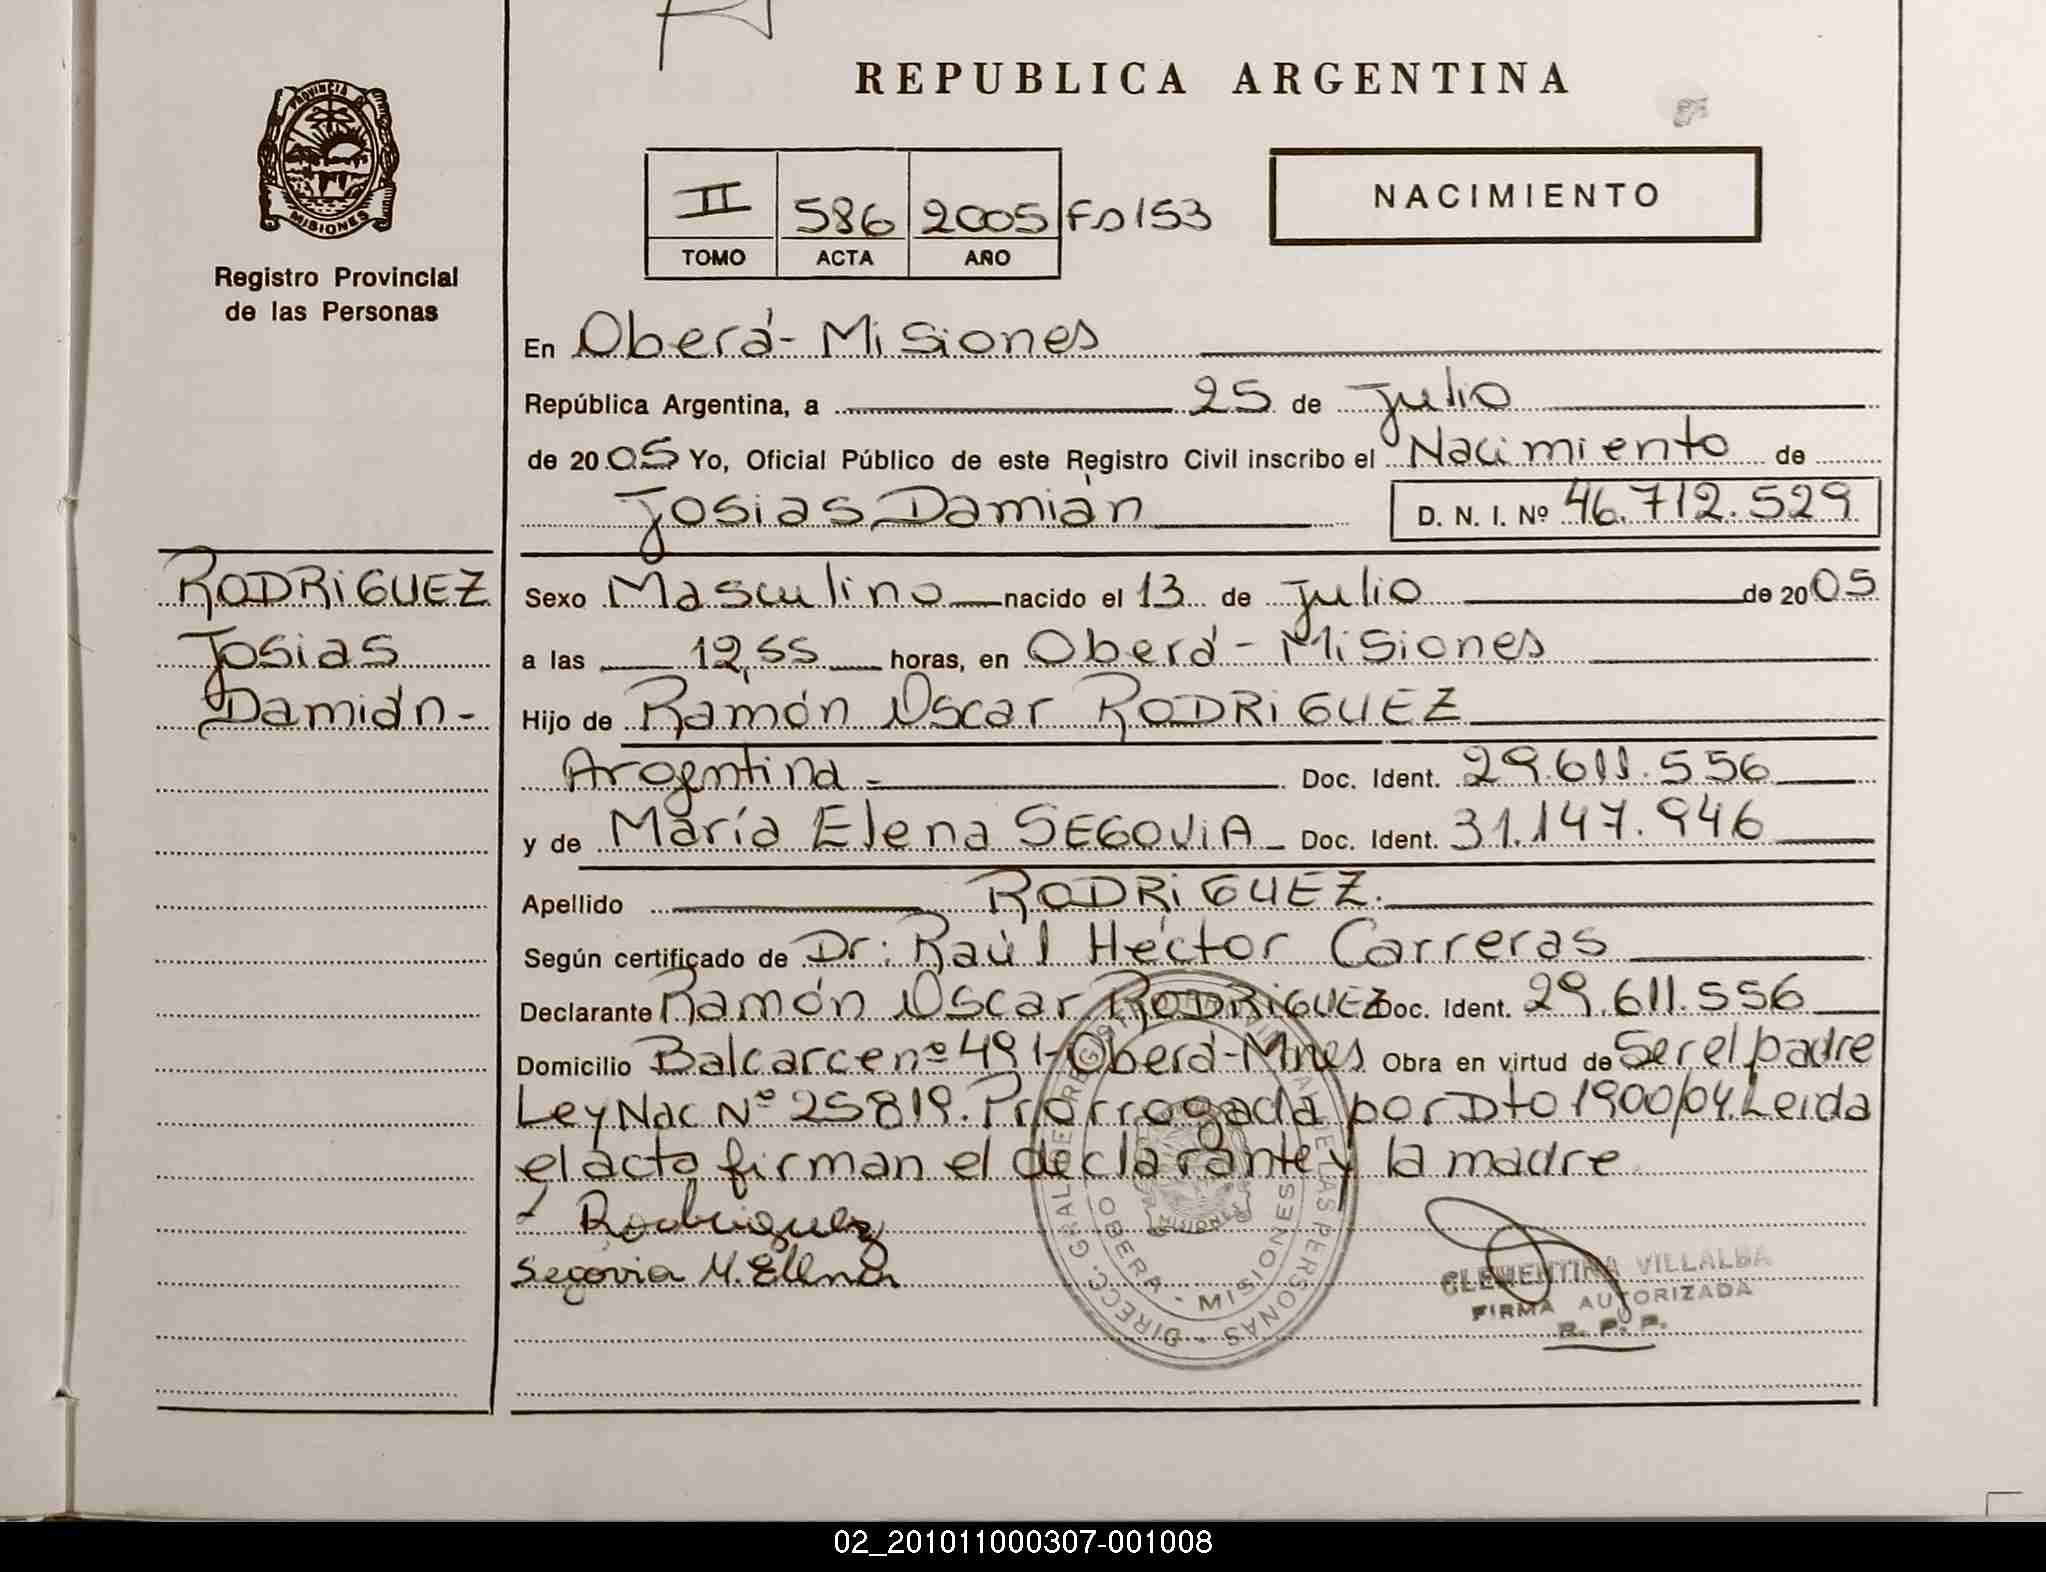 REPUBLICA ARGENTINA
PROVINCIA D
MISIONES
Registro Provincial
de las Personas
II 586 2005 Fo 153
TOMO ACTA AÑO
NACIMIENTO
En Oberá - Misiones
República Argentina, a 25 de Julio
de 2005 Yo, Oficial Público de este Registro Civil inscribo el Nacimiento de
Josias Damián D. N. I. Nº 46.712.529
RODRIGUEZ
Josias
Damián-
Sexo Masculino nacido el 13 de Julio de 2005
a las 12,55 horas, en Oberá - Misiones
Hijo de Ramón Oscar RODRIGUEZ
Argentina.- Doc. Ident. 29.611.556
y de María Elena SEGOVIA Doc. Ident. 31.147.946
Apellido RODRIGUEZ.
Según certificado de Dr: Raúl Héctor Carreras
Declarante Ramón Oscar RODRIGUEZ Doc. Ident. 29.611.556
Domicilio Balcarce nº 491-Oberá-Mnes Obra en virtud de Ser el padre
Ley Nac Nº 25819. Prorrogada por Dto 1900/04. Leida
el acta firman el declarante y la madre
Rodriguez
Segovia M. Elena
OBERA - MISIONES
MISIONES
CLEMENTINA VILLALBA
FIRMA AUTORIZADA
R. P. P.
02_201011000307-001008